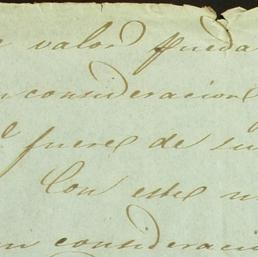 valor pueda
consideracion
fuere de su
Con este
consideracio